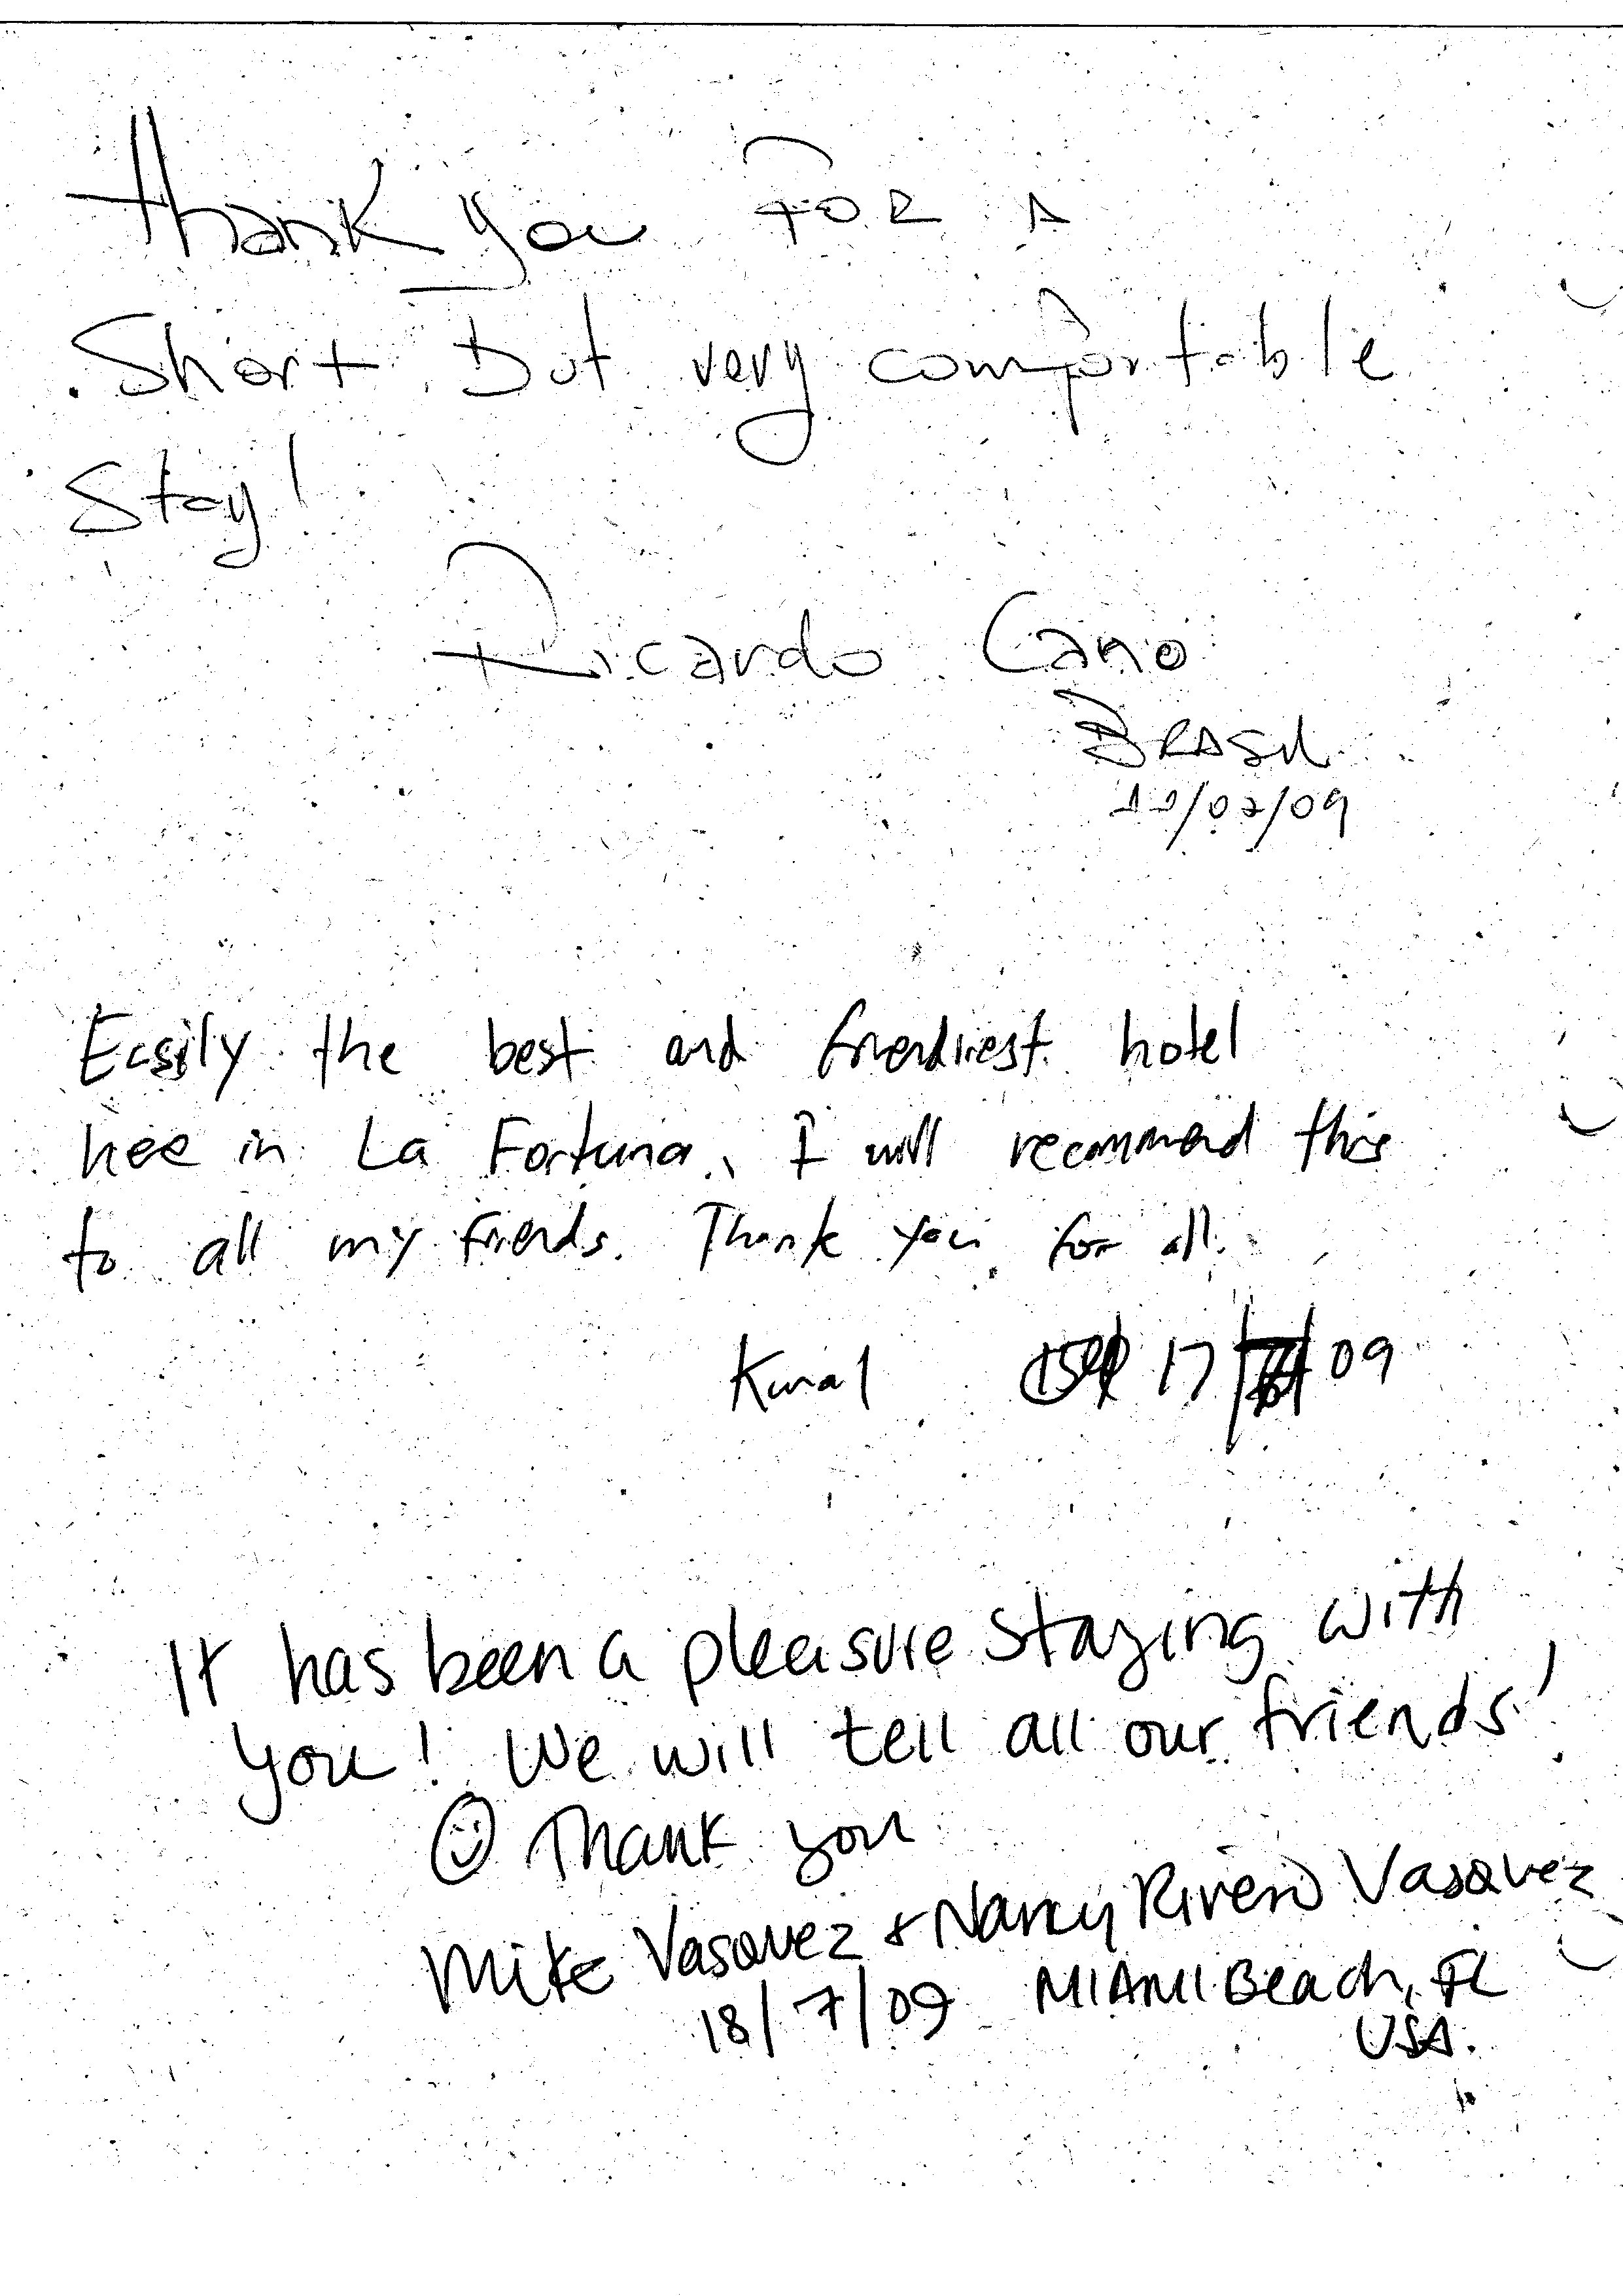 Thank you FOR A
Short But very comfortable
Stay!
Ricardo Cano
BRASIL
Easily the best and friendliest hotel
here in La Fortuna. I will recommend this
to all my friends. Thank you for all.
17 09
It has been a pleasure staying with
you! We will tell all our friends!
Thank you
Mike Vasquez + Nancy Rivero Vasquez
18/7/09 MIAMI Beach, FL
USA.